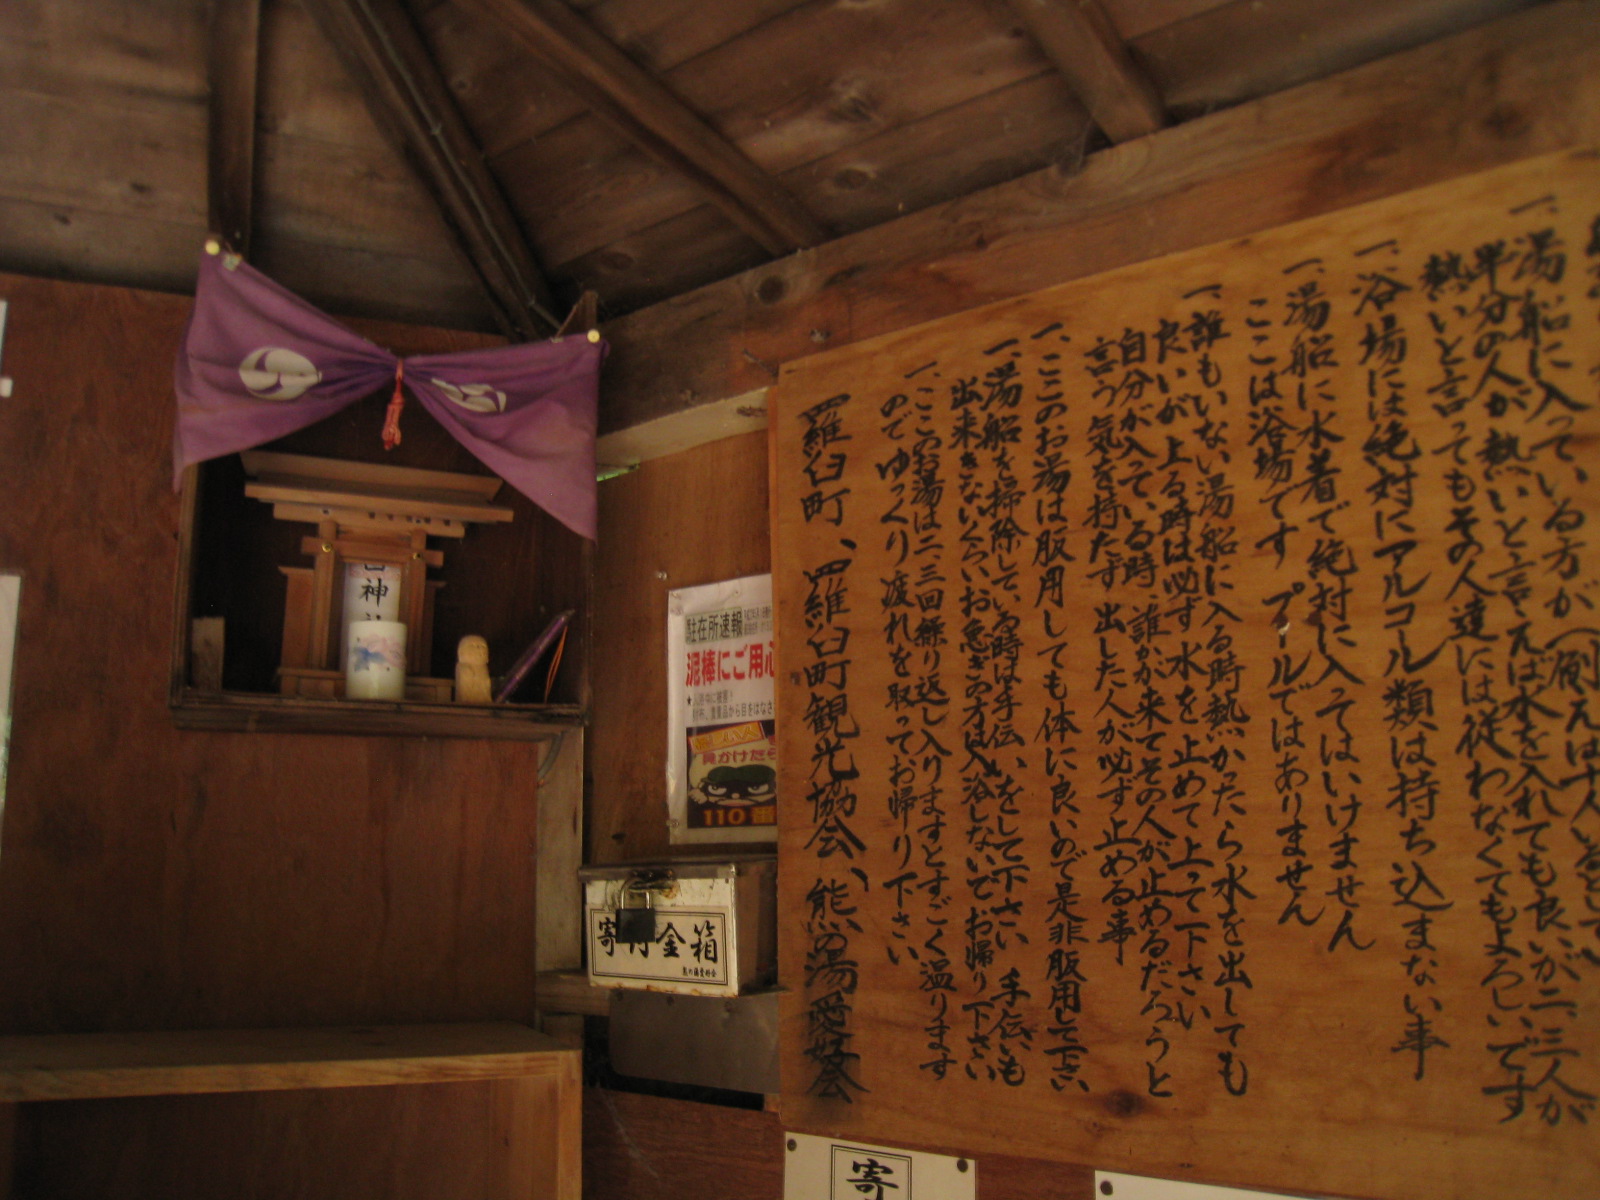 一、湯船に入っている方が(例えば十人いるとして
半分の人が熱いと言えば水を入れても良いが二、三人が
熱いと言ってもその人達には従わなくてもよろしいです
一、浴場には絶対にアルコール類は持ち込まない事
一、湯船に水着で絶対に入ってはいけません
ここは浴場です プールではありません
一、誰もいない湯船に入る時熱かったら水を出しても
良いが上る時は必ず水を止めて上って下さい
自分が入っている時誰かが来てその人が止めるだろうと
言う気を持たず出した人が必ず止める事
一、ここのお湯は服用しても体に良いので是非服用して下さい
一、湯船を掃除している時は手伝いをして下さい 手伝いも
出来きないくらいお急ぎの方は入浴しないでお帰り下さい
一、ここのお湯は二、三回繰り返し入りますとすごく温ります
のでゆっくり疲れを取ってお帰り下さい
羅臼町、羅臼町観光協会、熊の湯愛好会
神
駐在所速報
泥棒にご用心
110番
寄付金箱
熊の湯愛好会
寄